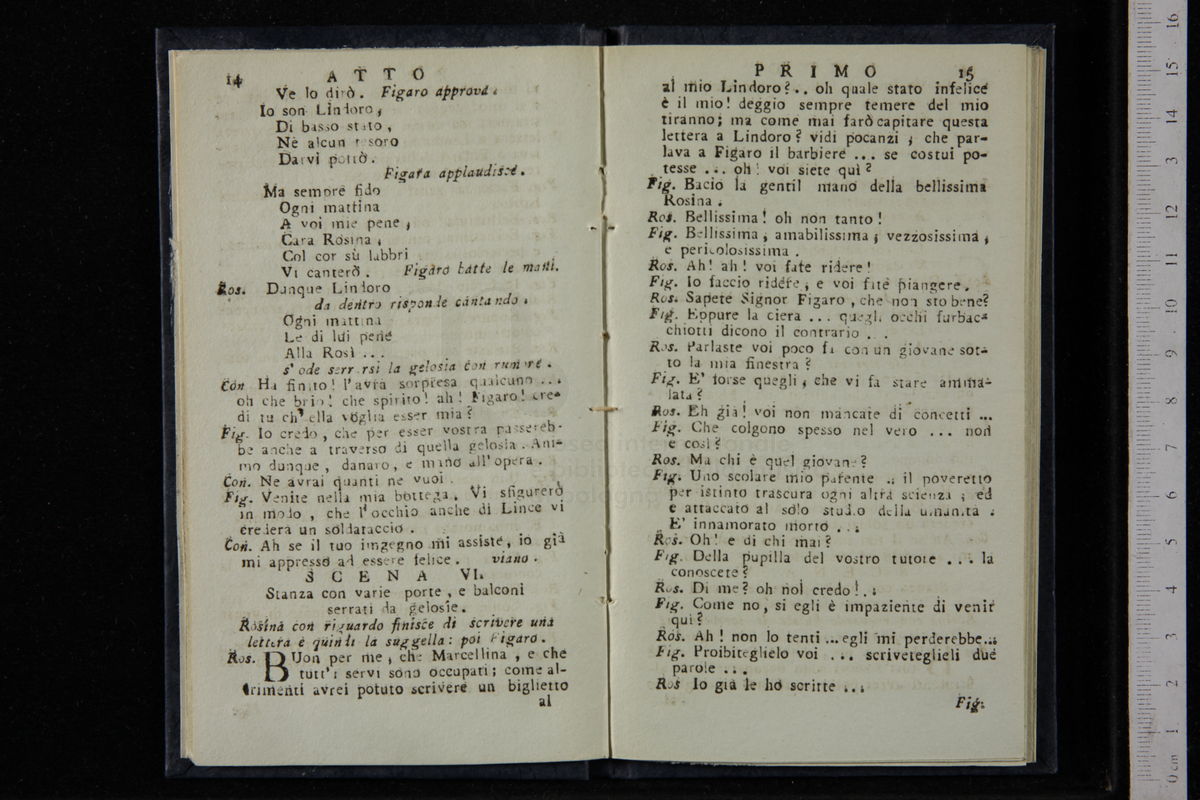 14 ATTO
Ve lo dirò. Figaro approva.
Io son Lindoro,
Di basso stato,
Nè alcun tesoro
Darvi potrò.
Figara applaudisce.
Ma sempre fido
Ogni mattina
A voi mie pene,
Cara Rosina,
Col cor sù labbri
Vi canterò. Figaro batte le mani.
Ros. Dunque Lindoro
da dentro risponde cantando.
Ogni mattina
Le di lui pene
Alla Rosì ...
s' ode serrarsi la gelosia con rumore.
Con Ha finito! l'avrà sorpresa qualcuno ...
oh che brio! che spirito! ah! Figaro! cre-
di tu ch' ella voglia esser mia?
Fig. Io credo, che per esser vostra passereb-
be anche a traverso di quella gelosia. Ani-
mo dunque, danaro, e mano all' opera.
Con. Ne avrai quanti ne vuoi.
Fig. Venite nella mia bottega. Vi sfigurerò
in modo, che l' occhio anche di Lince vi
crederà un soldataccio.
Con. Ah se il tuo ingegno mi assiste, io già
mi appresso ad essere felice. viano.
SCENA VI.
Stanza con varie porte, e balconi
serrati da gelosie.
Rosina con riguardo finisce di scrivere una
lettera e quindi la suggella: poi Figaro.
Ros. BUon per me, che Marcellina, e che
tutt' i servi sono occupati; come al-
trimenti avrei potuto scrivere un biglietto
al
PRIMO 15
al mio Lindoro?.. oh quale stato infelice
è il mio! deggio sempre temere del mio
tiranno; ma come mai farò capitare questa
lettera a Lindoro? vidi pocanzi, che par-
lava a Figaro il barbiere ... se costui po-
tesse ... oh! voi siete quì?
Fig. Bacio la gentil mano della bellissima
Rosina.
Ros. Bellissima! oh non tanto!
Fig. Bellissima, amabilissima, vezzosissima,
e pericolosissima.
Ros. Ah! ah! voi fate ridere!
Fig. Io faccio ridere, e voi fate piangere.
Ros. Sapete Signor Figaro, che non sto bene?
Fig. Eppure la ciera ... quegli occhi furbac-
chiotti dicono il contrario ...
Ros. Parlaste voi poco fa con un giovane sot-
to la mia finestra?
Fig. E' forse quegli, che vi fa stare amma-
lata?
Ros. Eh già! voi non mancate di concetti ...
Fig. Che colgono spesso nel vero ... non
è così?
Ros. Ma chi è quel giovane?
Fig. Uno scolare mio parente .. il poveretto
per istinto trascura ogni altra scienza, ed
è attaccato al solo studio della umanità.
E' innamorato morto ...
Ros. Oh! e di chi mai?
Fig. Della pupilla del vostro tutore ... la
conoscete?
Ros. Di me? oh nol credo!..
Fig. Come no, si egli è impaziente di venir
quì?
Ros. Ah! non lo tenti ... egli mi perderebbe...
Fig. Proibiteglielo voi ... scriveteglieli due
parole ...
Ros Io già le ho scritte ...
Fig.